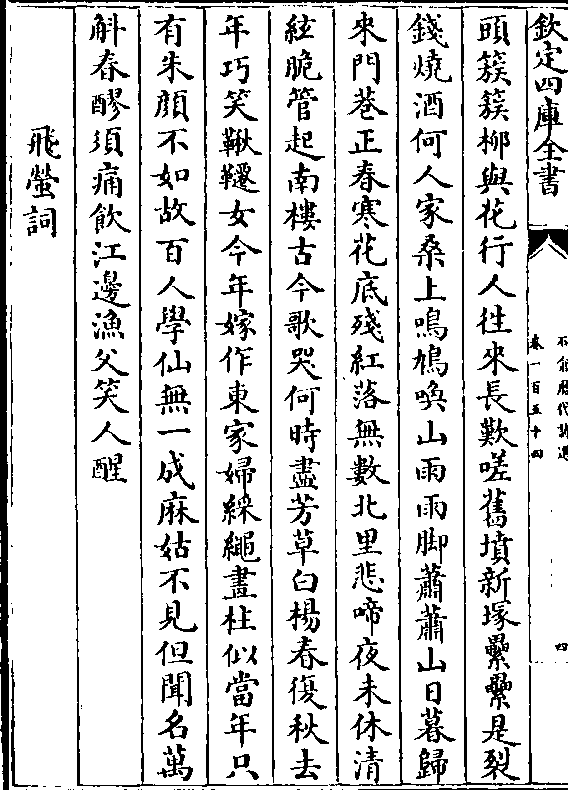 欽定四庫全書
石倉歴代詩選
卷一百五十四
四
頭簇簇栁與花行人徃來長歎嗟舊墳新塚纍纍是裂
錢燒酒何人家桑上鳴鳩喚山雨雨脚蕭蕭山日暮歸
來門巷正春寒花底殘紅落無數北里悲啼夜未休清
絃脆管起南樓古今歌哭何時盡芳草白楊春復秋去
年巧笑鞦韆女今年嫁作東家婦綵繩畫柱似當年只
有朱顔不如故百人學仙無一成麻姑不見但聞名萬
斛春醪須痛飲江邊漁父笑人醒
飛螢詞